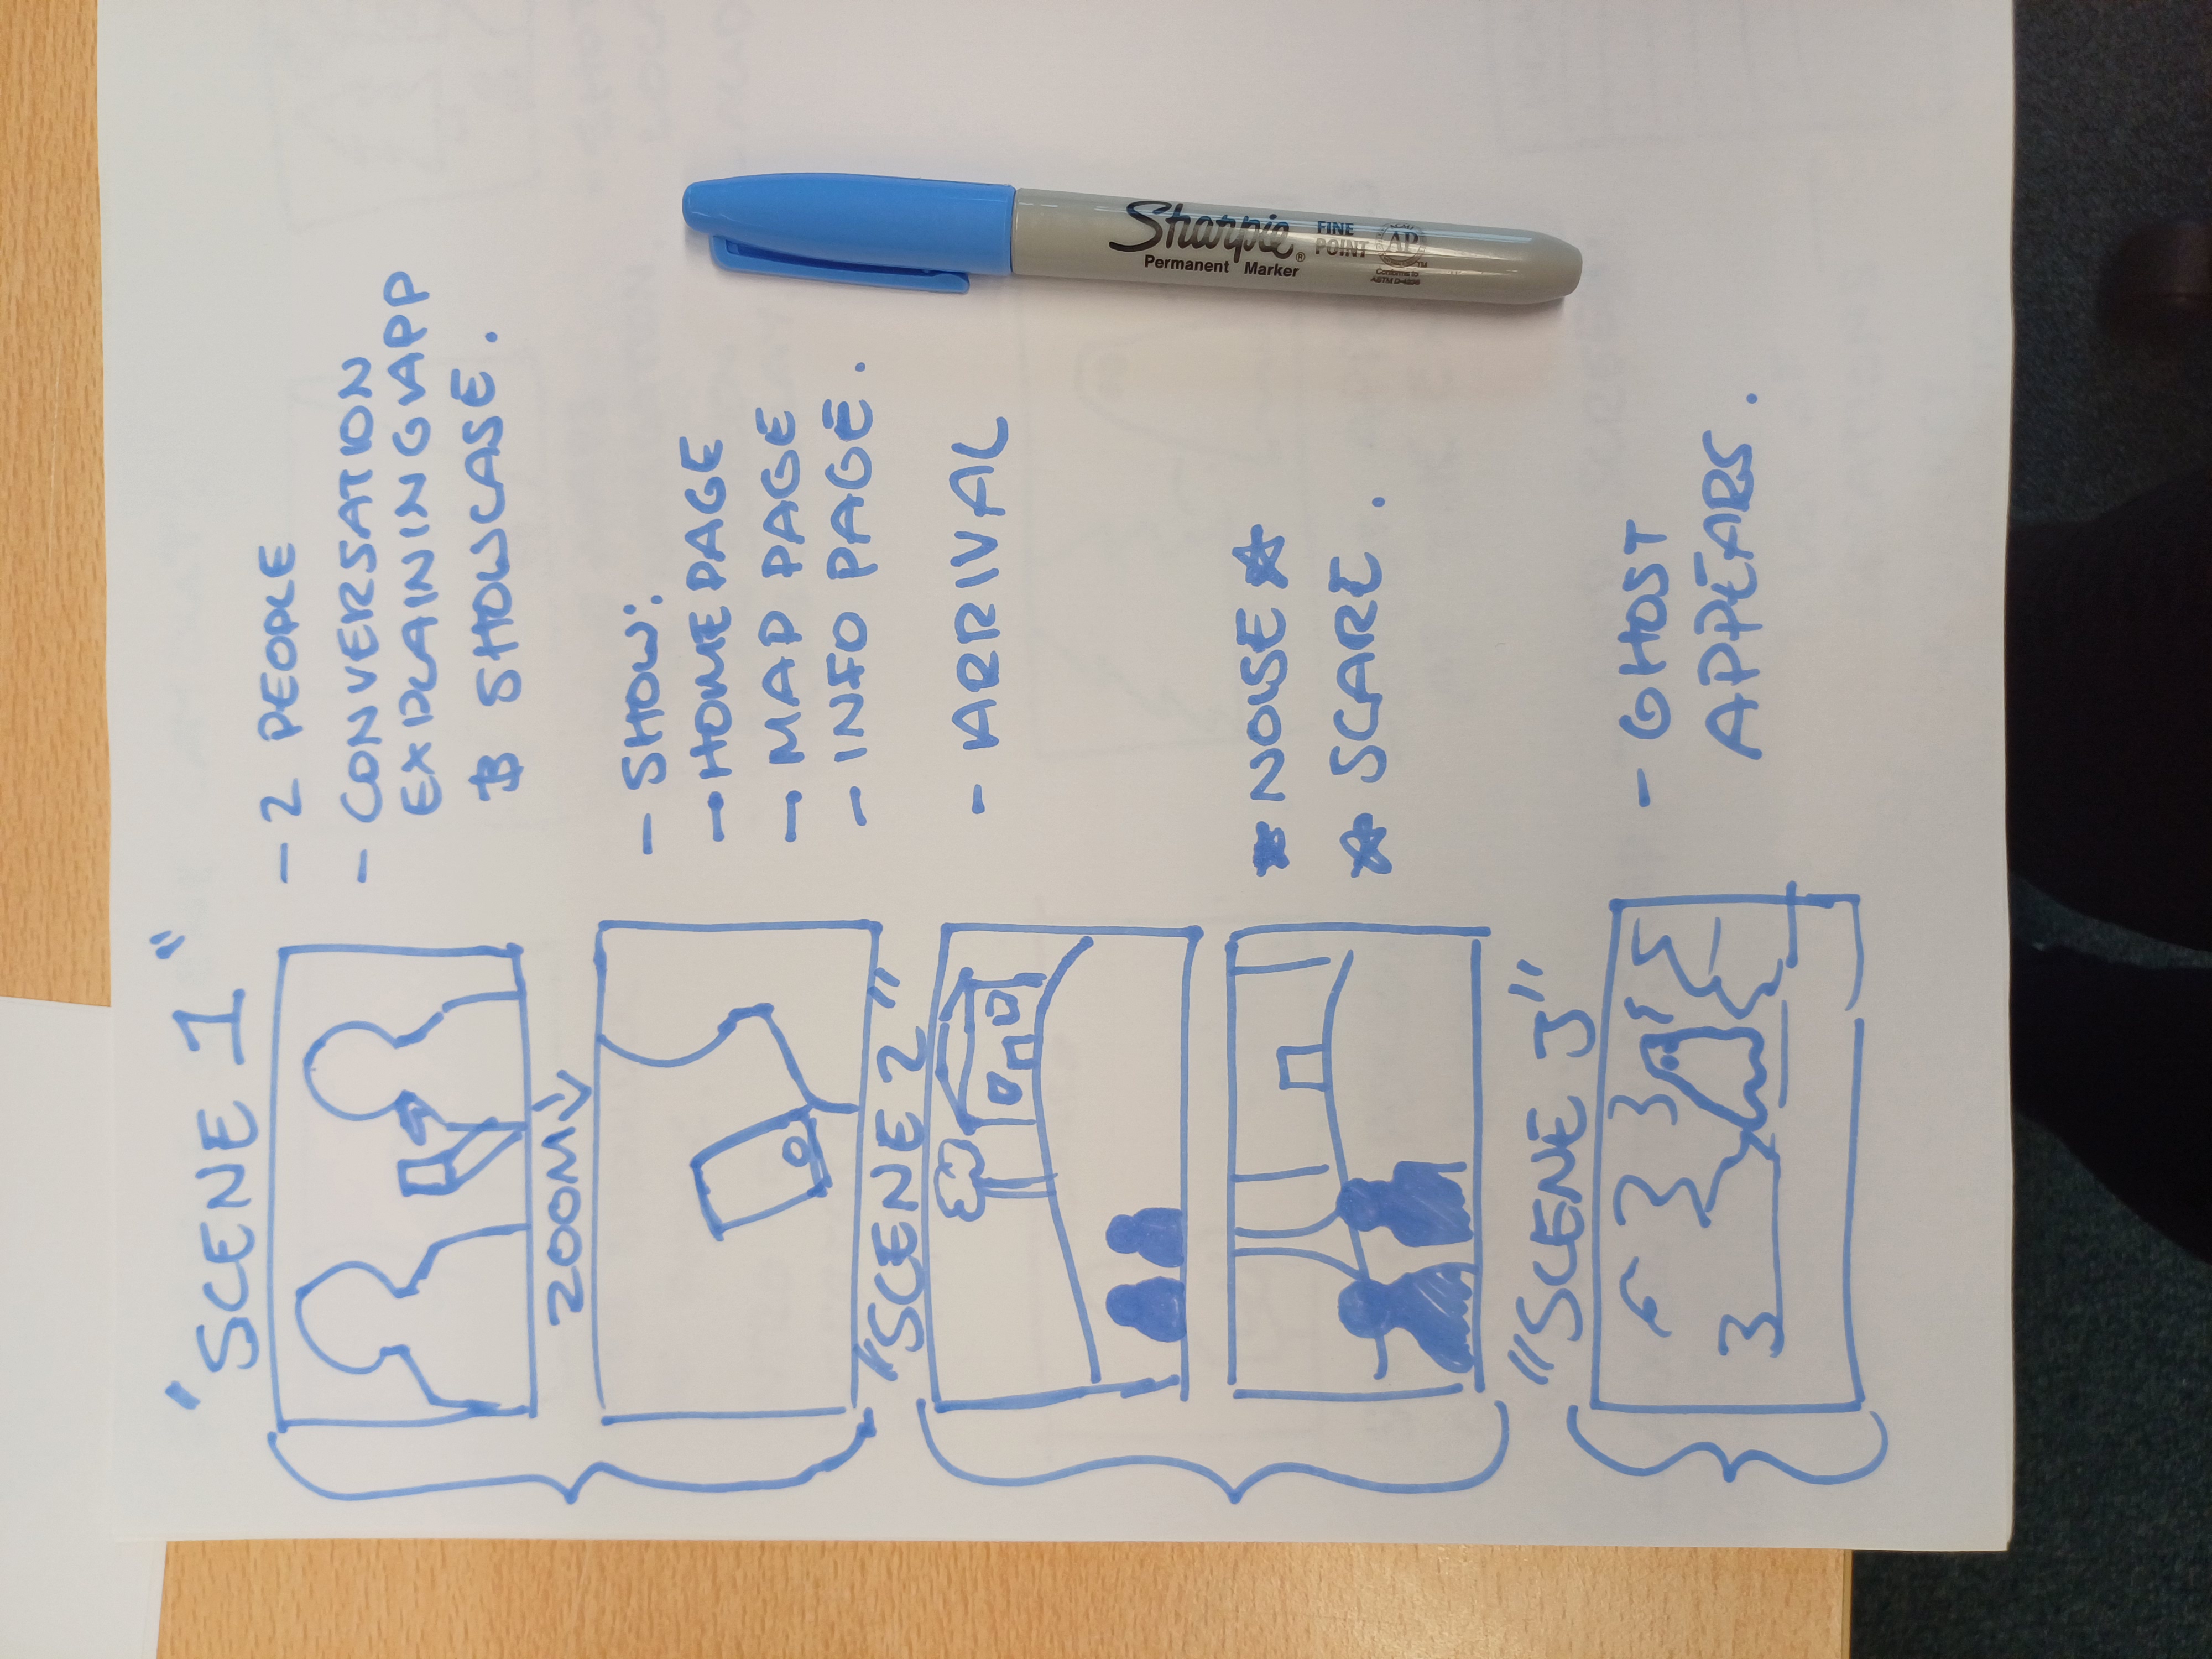 "SCENE 1"
- 2 PEOPLE
- CONVERSATION
EXPLAINING APP
& SHOWCASE.
ZOOM ↓
- SHOW:
→ HOMEPAGE
→ MAP PAGE
- INFO PAGE.
"SCENE 2"
- ARRIVAL
★ NOISE ★
★ SCARE.
"SCENE 3"
- GHOST
APPEARS.
Sharpie®
Permanent Marker
FINE
POINT
AP